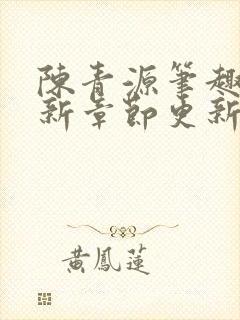 陳青源筆趣
新章節更新
黃鳳蓮